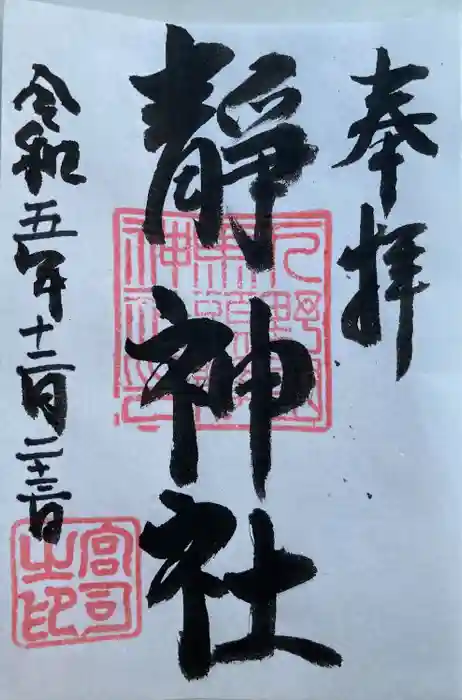 奉拝
靜神社
令和五年十二月二十三日
宮司
之印